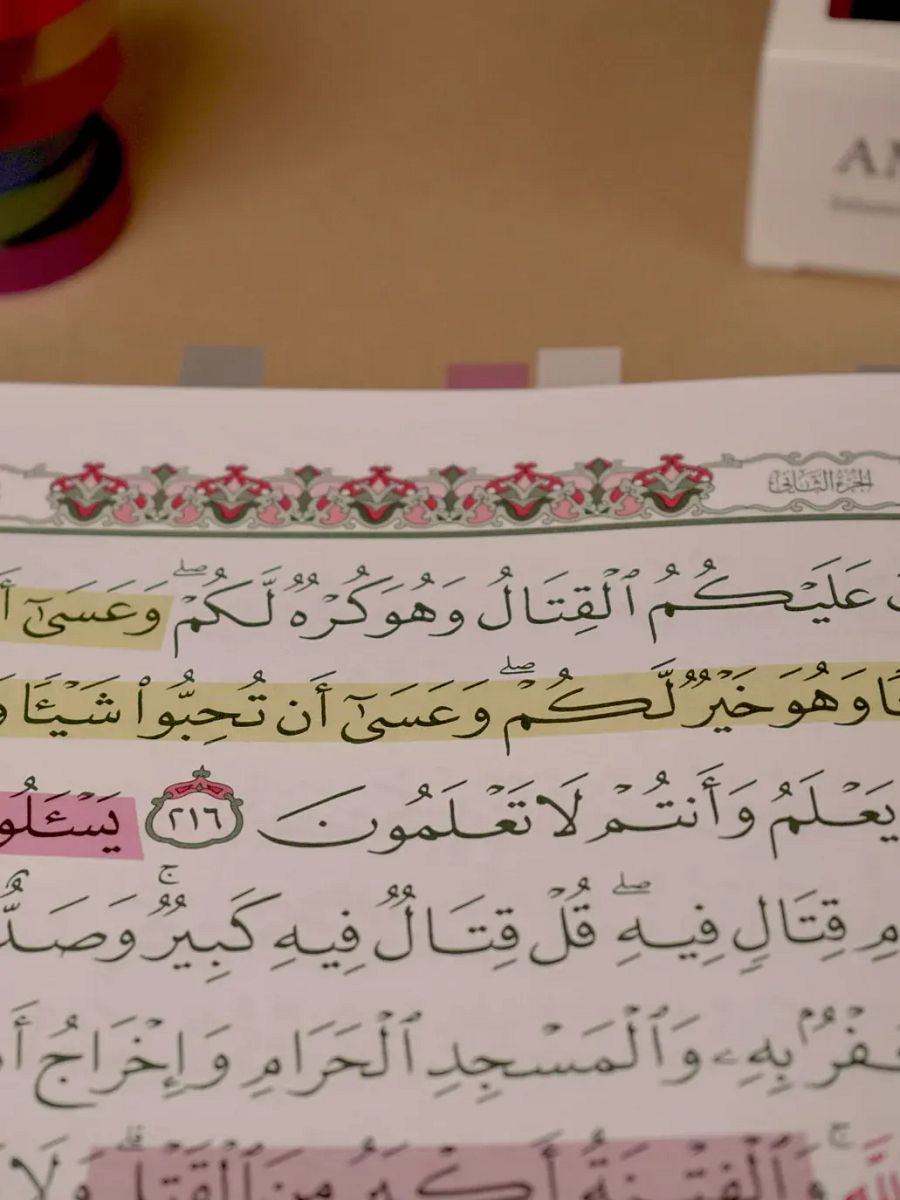 AN
الجزء الثاني
عَلَيۡكُمُ ٱلۡقِتَالُ وَهُوَ كُرۡهٞ لَّكُمۡۖ وَعَسَىٰٓ أَ
ـًٔا وَهُوَ خَيۡرٞ لَّكُمۡۖ وَعَسَىٰٓ أَن تُحِبُّواْ شَيۡـٔٗا وَ
يَعۡلَمُ وَأَنتُمۡ لَا تَعۡلَمُونَ ٢١٦ يَسۡـَٔلُو
مِ قِتَالٖ فِيهِۖ قُلۡ قِتَالٞ فِيهِ كَبِيرٞۚ وَصَدٌّ
ـفۡرُۢ بِهِۦ وَٱلۡمَسۡجِدِ ٱلۡحَرَامِ وَإِخۡرَاجُ أَهۡ
ٱللَّهِۚ وَٱلۡفِتۡنَةُ أَكۡبَرُ مِنَ ٱلۡقَتۡلِۗ وَلَا